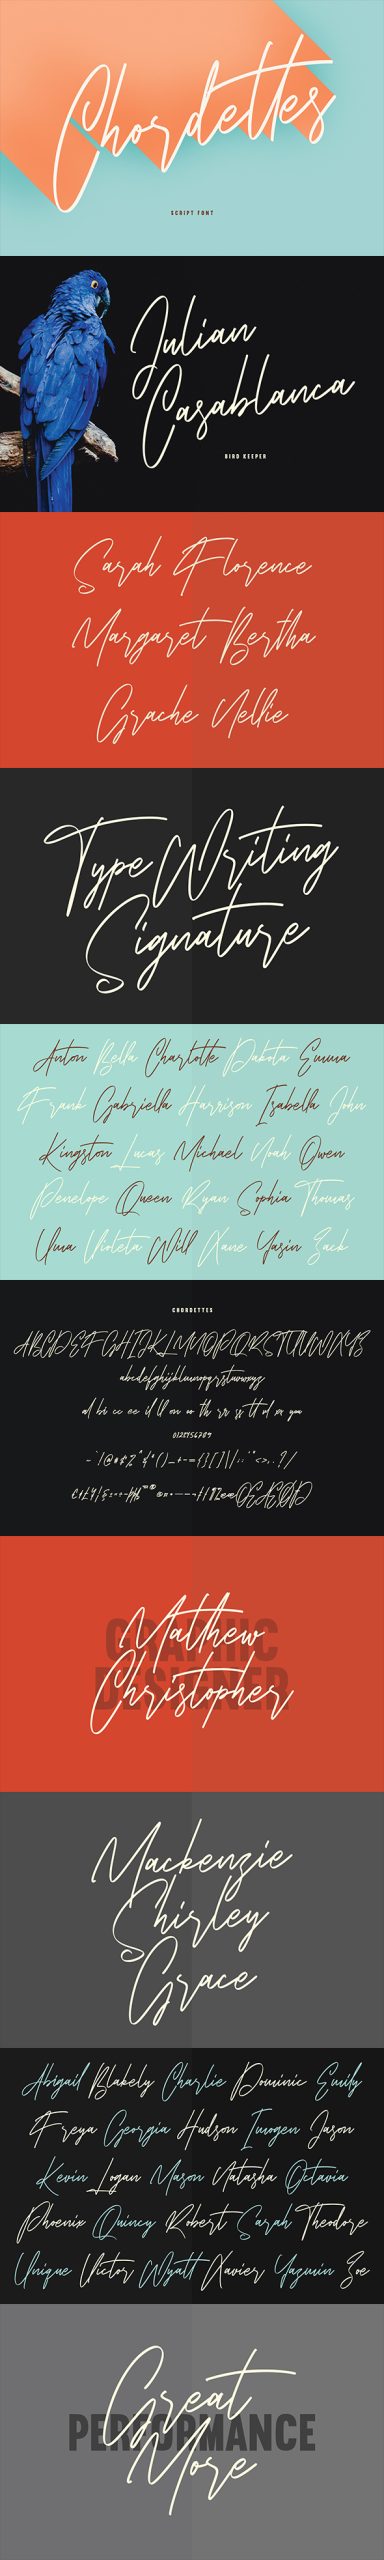 Chordettes
SCRIPT FONT
Julian
Casablanca
BIRD KEEPER
Sarah Florence
Margaret Bertha
Grache Nellie
Type Writing
Signature
Anton Bella Charlotte Dakota Emma
Frank Gabriella Harrison Isabella John
Kingston Lucas Michael Noah Owen
Penelope Queen Ryan Sophia Thomas
Uma Violeta Will Xane Yasin Zack
CHORDETTES
ABCDEFGHIJKLMNOPQRSTUVWXYZ
abcdefghijklmnopqrstuvwxyz
0123456789
GRAPHIC
DESIGNER
Matthew
Christopher
Mackenzie
Shirley
Grace
Abigail Blakely Charlie Dominic Emily
Freya Georgia Hudson Imogen Jason
Kevin Logan Mason Natasha Octavia
Phoenix Quincy Robert Sarah Theodore
Unique Victor Wyatt Xavier Yazmin Zoe
Great
PERFORMANCE
More